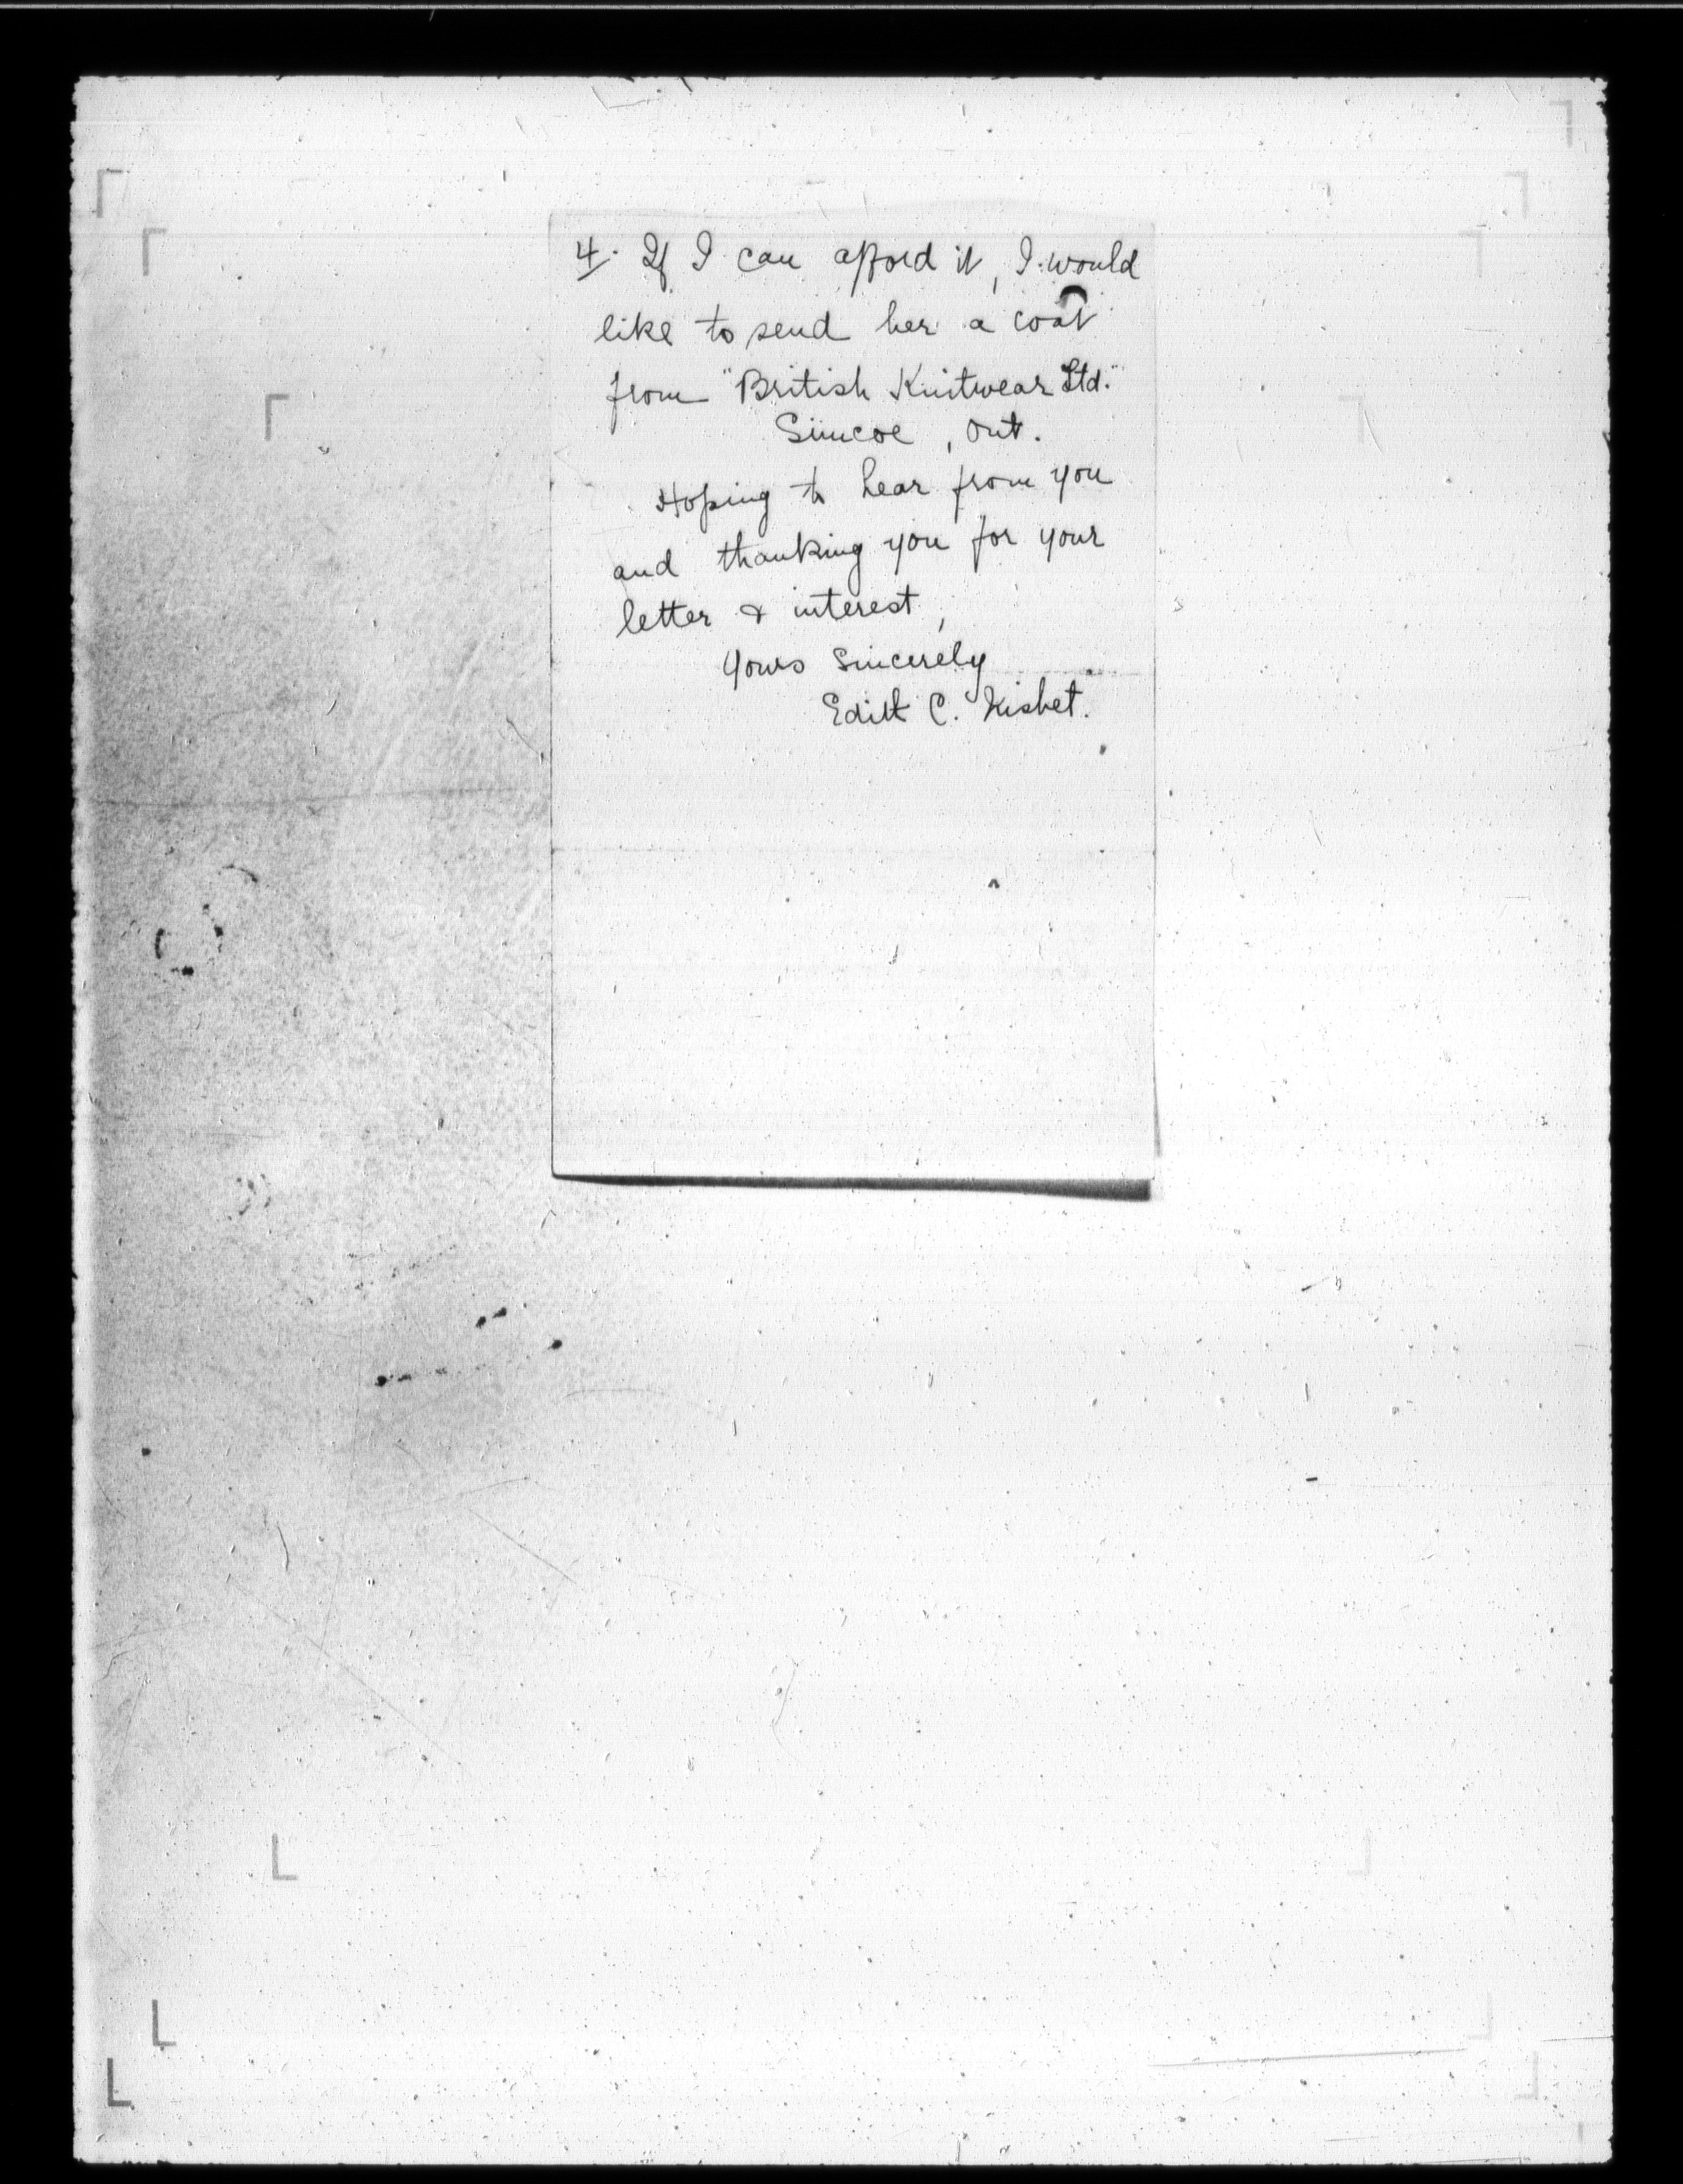 4. If I can afford it, I would
like to send her a coat
from "British Knitwear Ltd."
Simcoe, Ont.
Hoping to hear from you
and thanking you for your
letter & interest,
Yours Sincerely
Edith C. Kisbet.